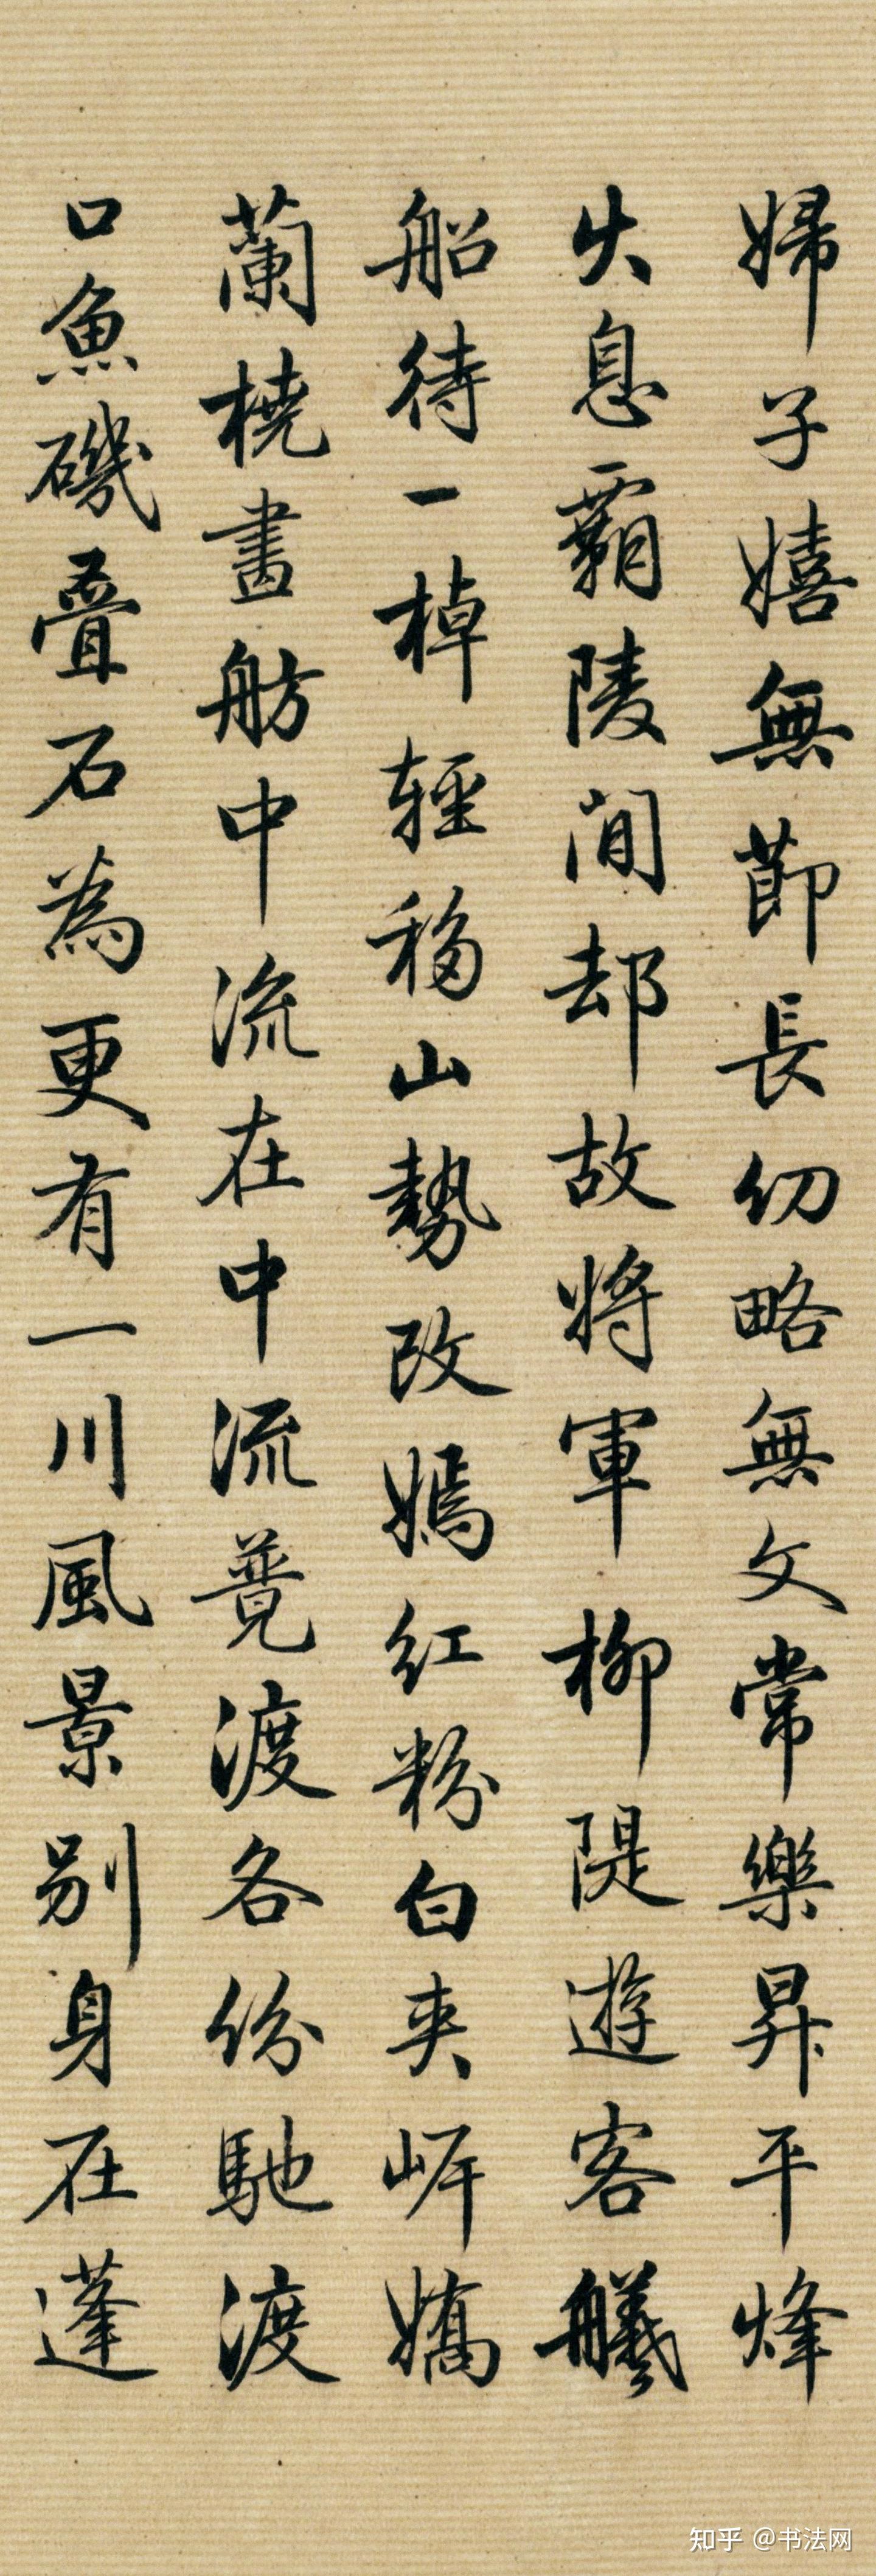 婦子嬉無節長幼略無文常樂昇平烽
火息霸陵閒却故將軍柳隄遊客艤
船待一棹輕移山勢改嫣紅粉白夾岸嬌
蘭橈畫舫中流在中流競渡各份馳渡
口魚磯疊石為更有一川風景别身在蓬
知乎 @书法网